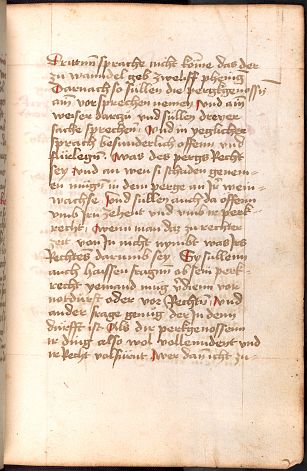 sprache nicht kome das der
zu wanndel geb zwelff phenig
Darnach so sullen die pergkgenossen
ain vorsprechen nemen Und ain
weiser darzu und sullen dreyer
sache sprechen Und in yeglicher
sprach besunderlich offenn und
Was des pergs Recht
sey Und an wen si schaden genem-
en mugen in dem perge an Jr wein-
wachse Und sullen auch da offenn
umb Jrn zehent und umb Jr perk-
recht Wenn man das zu rechter
von Jn nicht nymbt was Jrs
Rechtes darumb sey Sy sullenn
auch haissen fragenn ob sein perk-
recht yemand mug vor
notdurft oder vor Recht Und
ander frage genug der Jn denn
durfft ist Als die perkgenossenn
Jr ding also vol vollendent und
Jr Recht volfürnt Wer dan icht zu-